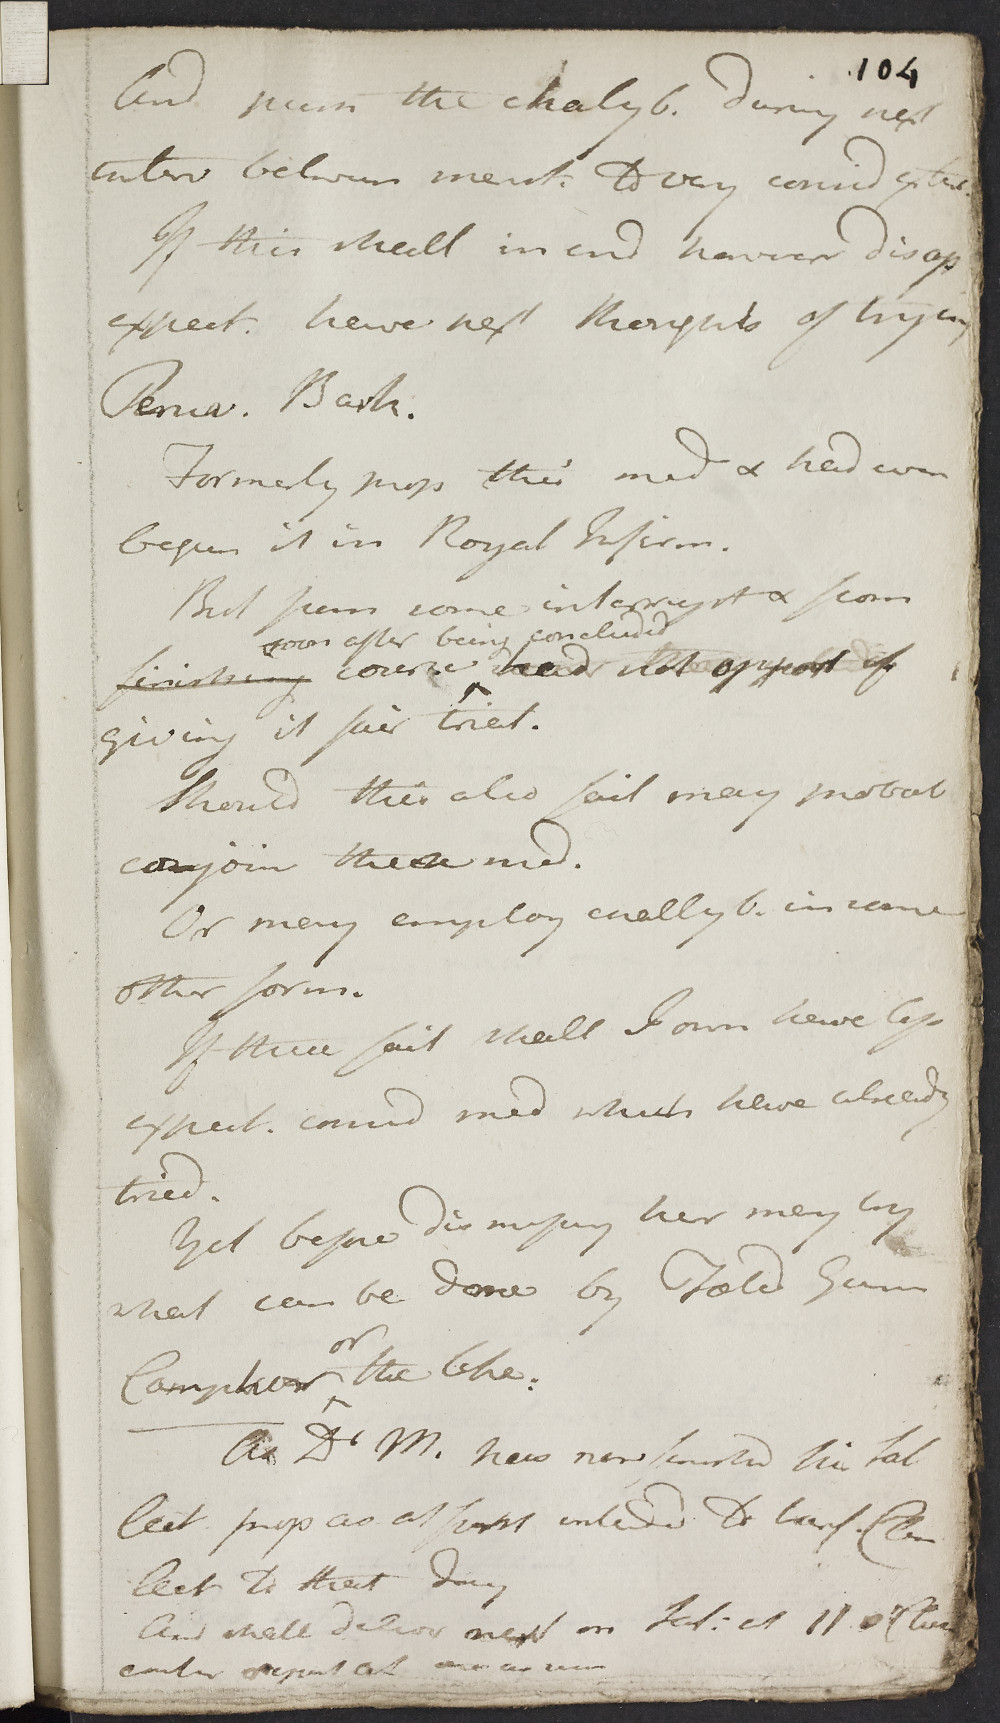 104
And push the chalyb. during next
interv between menst. to very consid extent.
If this shall in end however disap
expect. have next thoughts of trying
Peruv. Bark.
Formerly prop this med & had even
begun it in Royal Infirm.
But from some interrupt & from
soon after being concluded
finishing course had not opport of
giving it fair trial.
Should this also fail may probab
conjoin these med.
Or may employ challyb. in some
other form.
If these fail shall I own have less
expect. consid med which have already
tried.
Yet before dismissing her may try
what can be done by Fœtid Gum
Camphor or the like.
As Dr M. has now finished his Sat
lect prop as at first intended to transf. Clin
lect to that day
And shall deliver next on Sat: at 11 oClock